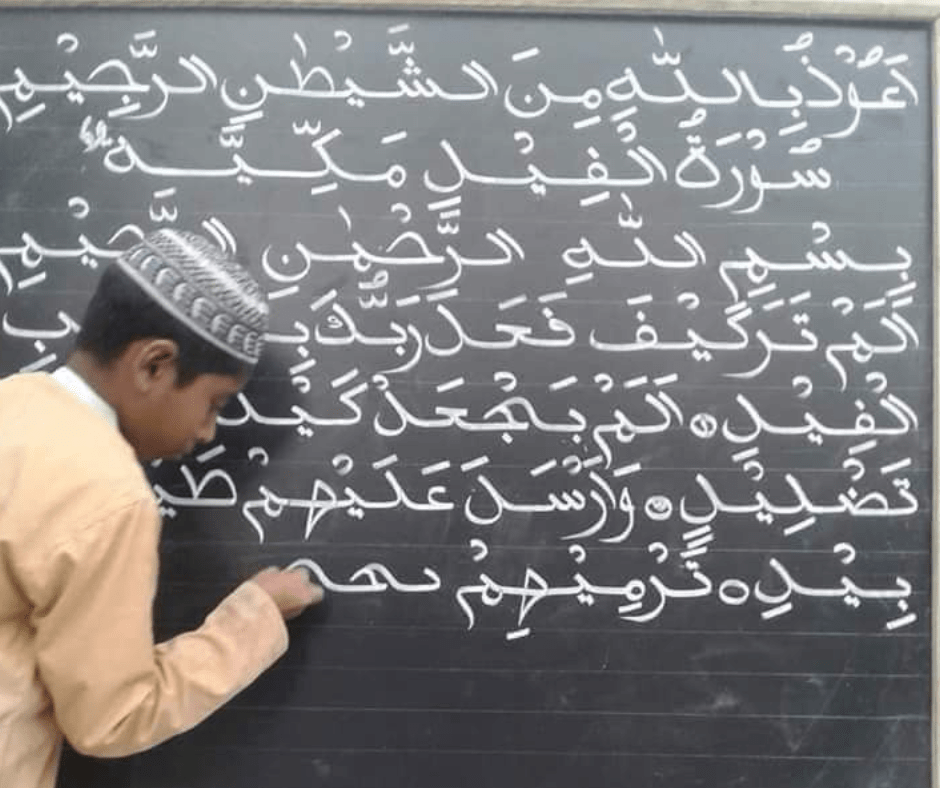 اَعُوْذُ بِاللّٰهِ مِنَ الشَّيْطٰنِ الرَّجِيْمِ
سُوْرَةُ الْفِيْلِ مَكِّيَّه
بِسْمِ اللّٰهِ الرَّحْمٰنِ الرَّحِيْمِ
اَلَمْ تَرَ كَيْفَ فَعَلَ رَبُّكَ
الْفِيْلِ ۝ اَلَمْ يَجْعَلْ كَيْدَ
تَضْلِيْلٍ ۝ وَاَرْسَلَ عَلَيْهِمْ
بِيْلٍ ۝ تَرْمِيْهِمْ